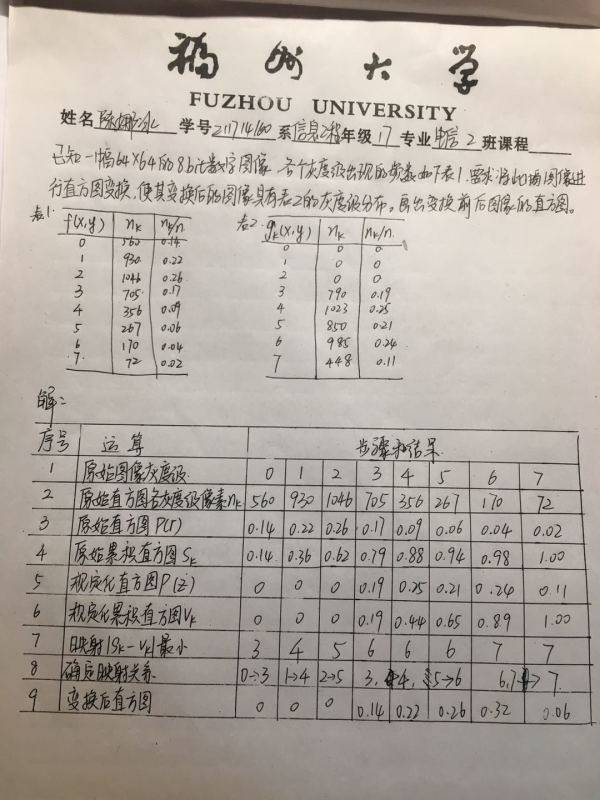 福州大学
FUZHOU UNIVERSITY
姓名 学号 211714160 系 信息工程 年级 17 专业 电信 2 班课程
已知一幅64×64的8bit数字图像,各个灰度级出现的频数如下表1.要求将此幅图像进
行直方图变换,使其变换后的图像具有表2的灰度级分布。画出变换前后图像的直方图。
表1. f(x,y) nk nk/n 表2. gk(x,y) nk nk/n
0 560 0.14 0 0 0
1 930 0.22 1 0 0
2 1046 0.26 2 0 0
3 705 0.17 3 790 0.19
4 356 0.09 4 1023 0.25
5 267 0.06 5 850 0.21
6 170 0.04 6 985 0.24
7 72 0.02 7 448 0.11
解:
序号 运算 步骤和结果
1 原始图像灰度级 0 1 2 3 4 5 6 7
2 原始直方图各灰度级像素nk 560 930 1046 705 356 267 170 72
3 原始直方图P(r) 0.14 0.22 0.26 0.17 0.09 0.06 0.04 0.02
4 原始累积直方图Sk 0.14 0.36 0.62 0.79 0.88 0.94 0.98 1.00
5 规定化直方图P(z) 0 0 0 0.19 0.25 0.21 0.24 0.11
6 规定化累积直方图Vk 0 0 0 0.19 0.44 0.65 0.89 1.00
7 映射|Sk-Vk|最小 3 4 5 6 6 6 7 7
8 确定映射关系 0→3 1→4 2→5 3, 4, 5→6 6,7→7
9 变换后直方图 0 0 0 0.14 0.22 0.26 0.32 0.06